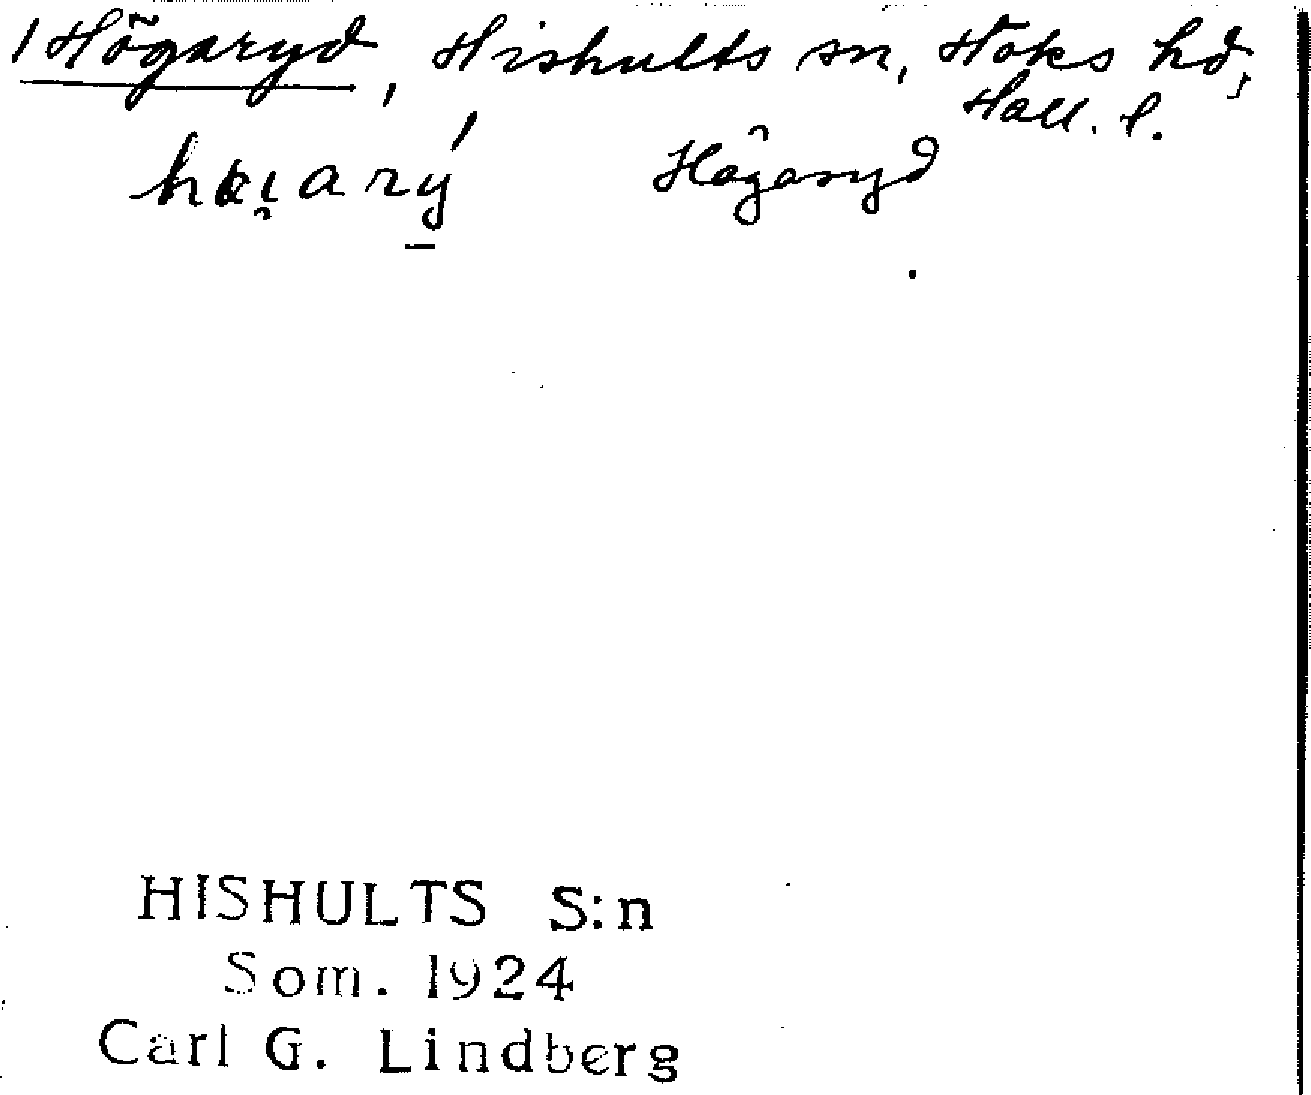 / Högaryd, Hishults sn, Höks hd,
Hall. l.
Högaryd
HISHULTS S:n
Som. 1924
Carl G. Lindberg